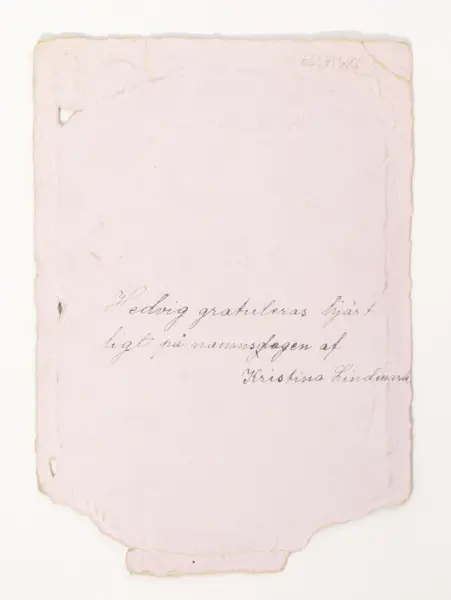 Hedvig gratuleras hjärt
ligt på namnsdagen af
Kristina Lindmark